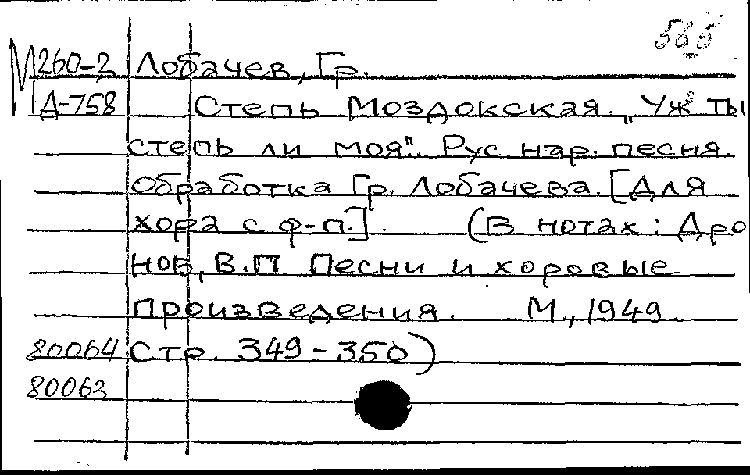 565
М260-2 Лобачев, Гр.
Д-758 Степь Моздокская. "Уж ты
степь ли моя". Рус. нар. песня.
Обработка Гр. Лобачева. [Для
хора с ф-п.] (В нотах: Дро
нов, В.П. Песни и хоровые
произведения. М., 1949.
80064 Стр. 349-350)
80063